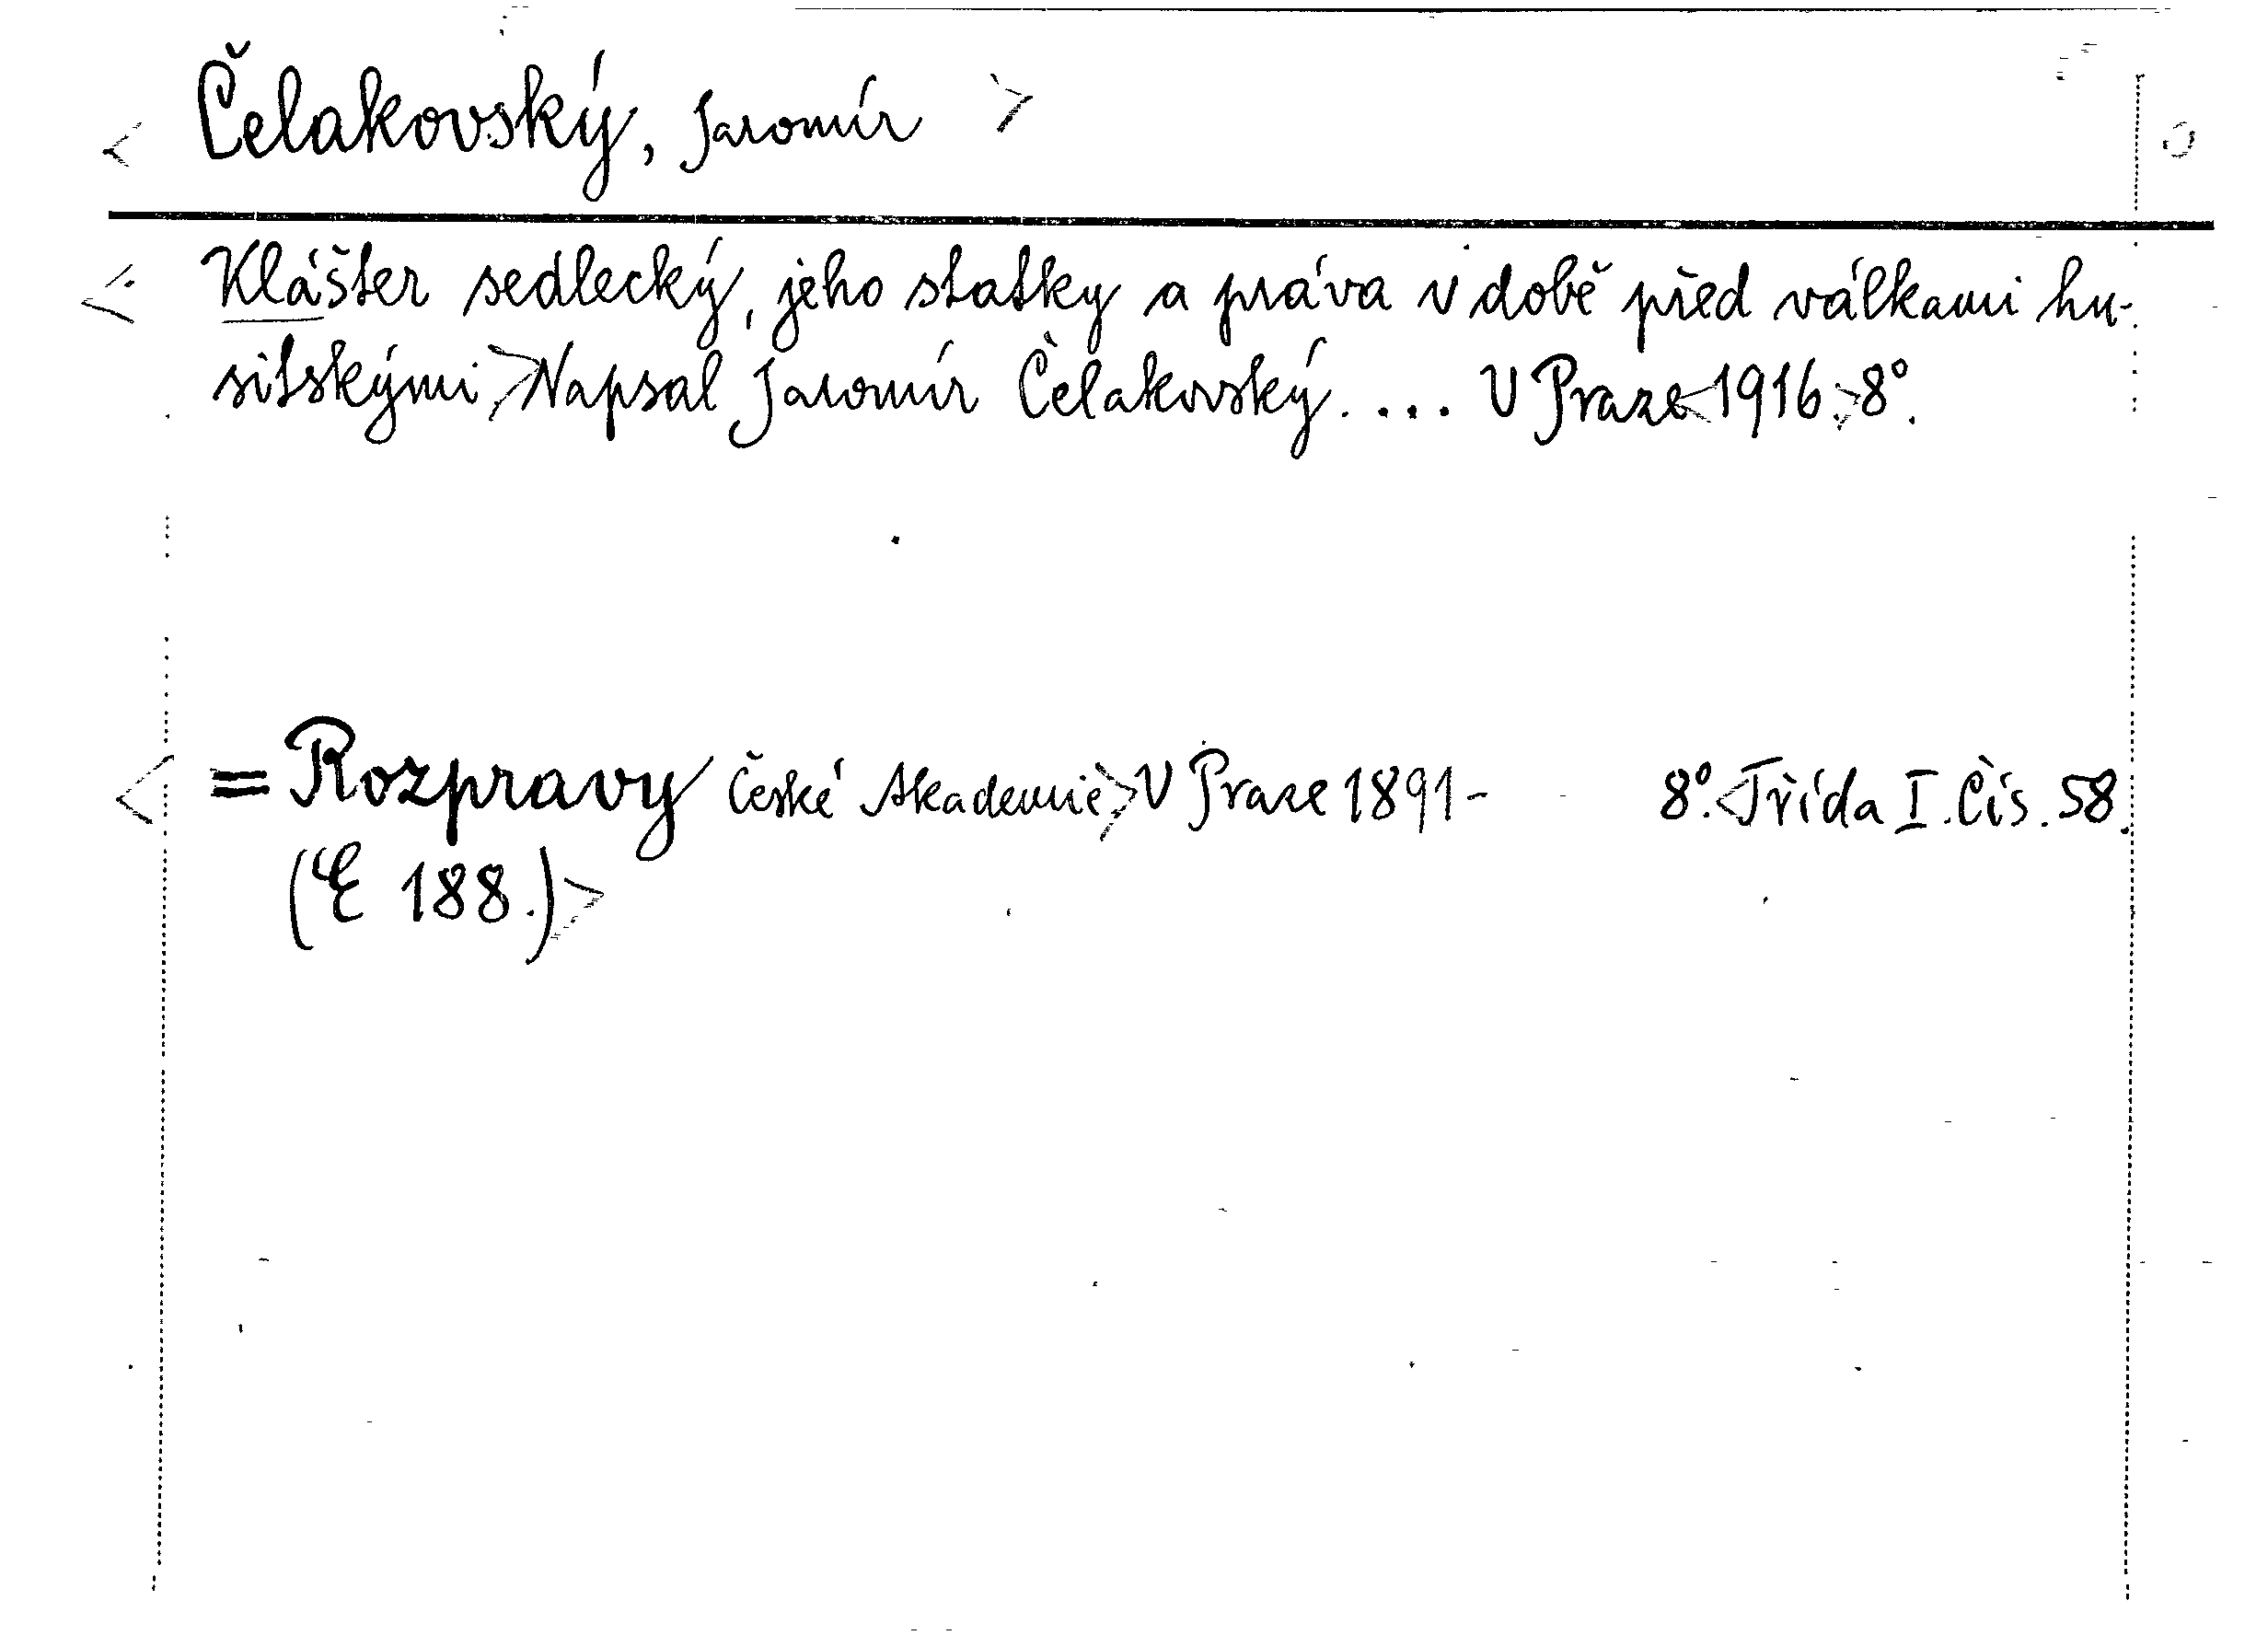 < Čelakovský, Jaromír >
< Klášter sedlecký, jeho statky a práva v době před válkami hu-
sitskými > Napsal Jaromír Čelakovský. ... V Praze < 1916. > 8°.
< = Rozpravy České Akademie > V Praze 1891- 8°. < Třída I. Čís. 58.
(E 188.) >